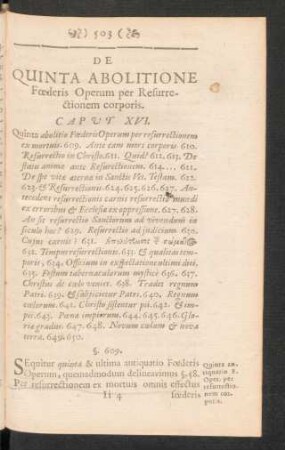 503
DE
QUINTA ABOLITIONE
Fœderis Operum per Resurre-
ctionem corporis.
CAPUT XVI.
Quinta abolitio Fœderis Operum per resurrectionem
ex mortuis. 609. Ante eam mors corporis 610.
Resurrectio in Christo. 611. Quid? 612. 613. De
statu animæ ante Resurrectionem. 614.... 621.
De spe vitæ æternæ in Sanctis Vet. Testam. 622.
623. & Resurrectionis. 624. 625. 626. 627. Ante
resurrectionis carnis resurrectio mundi
ex erroribus & Ecclesiæ ex oppressione. 627. 628.
An sit resurrectio Sanctorum ad vivendum in
seculo hoc? 629. Resurrectio ad judicium 630.
Cujus carnis? 631.
632. Tempus resurrectionis. 633. & qualitas tem-
poris. 634. Officium in exspectatione ultimi diei.
635. Festum tabernaculorum mysticè 636. 637.
Christus de nube veniet. 638. Tradet regnum
Patri. 639. & subjicietur Patri. 640. Regnum
cœlorum. 641. Christo sistentur pii. 642. & im-
pii. 643. Pœna impiorum. 644. 645. 646. Glo-
ria gradus. 647. 648. Novum cœlum & nova
terra. 649. 650.
§. 609.
SEquitur quinta & ultima antiquatio Fœderis
Operum, quemadmodum delineavimus §. 58.
Per resurrectionem ex mortuis omnis effectus
Ii 4 fœderis
Quinta an-
tiquatio F.
Oper. per
resurrectio-
nem cor-
poris.